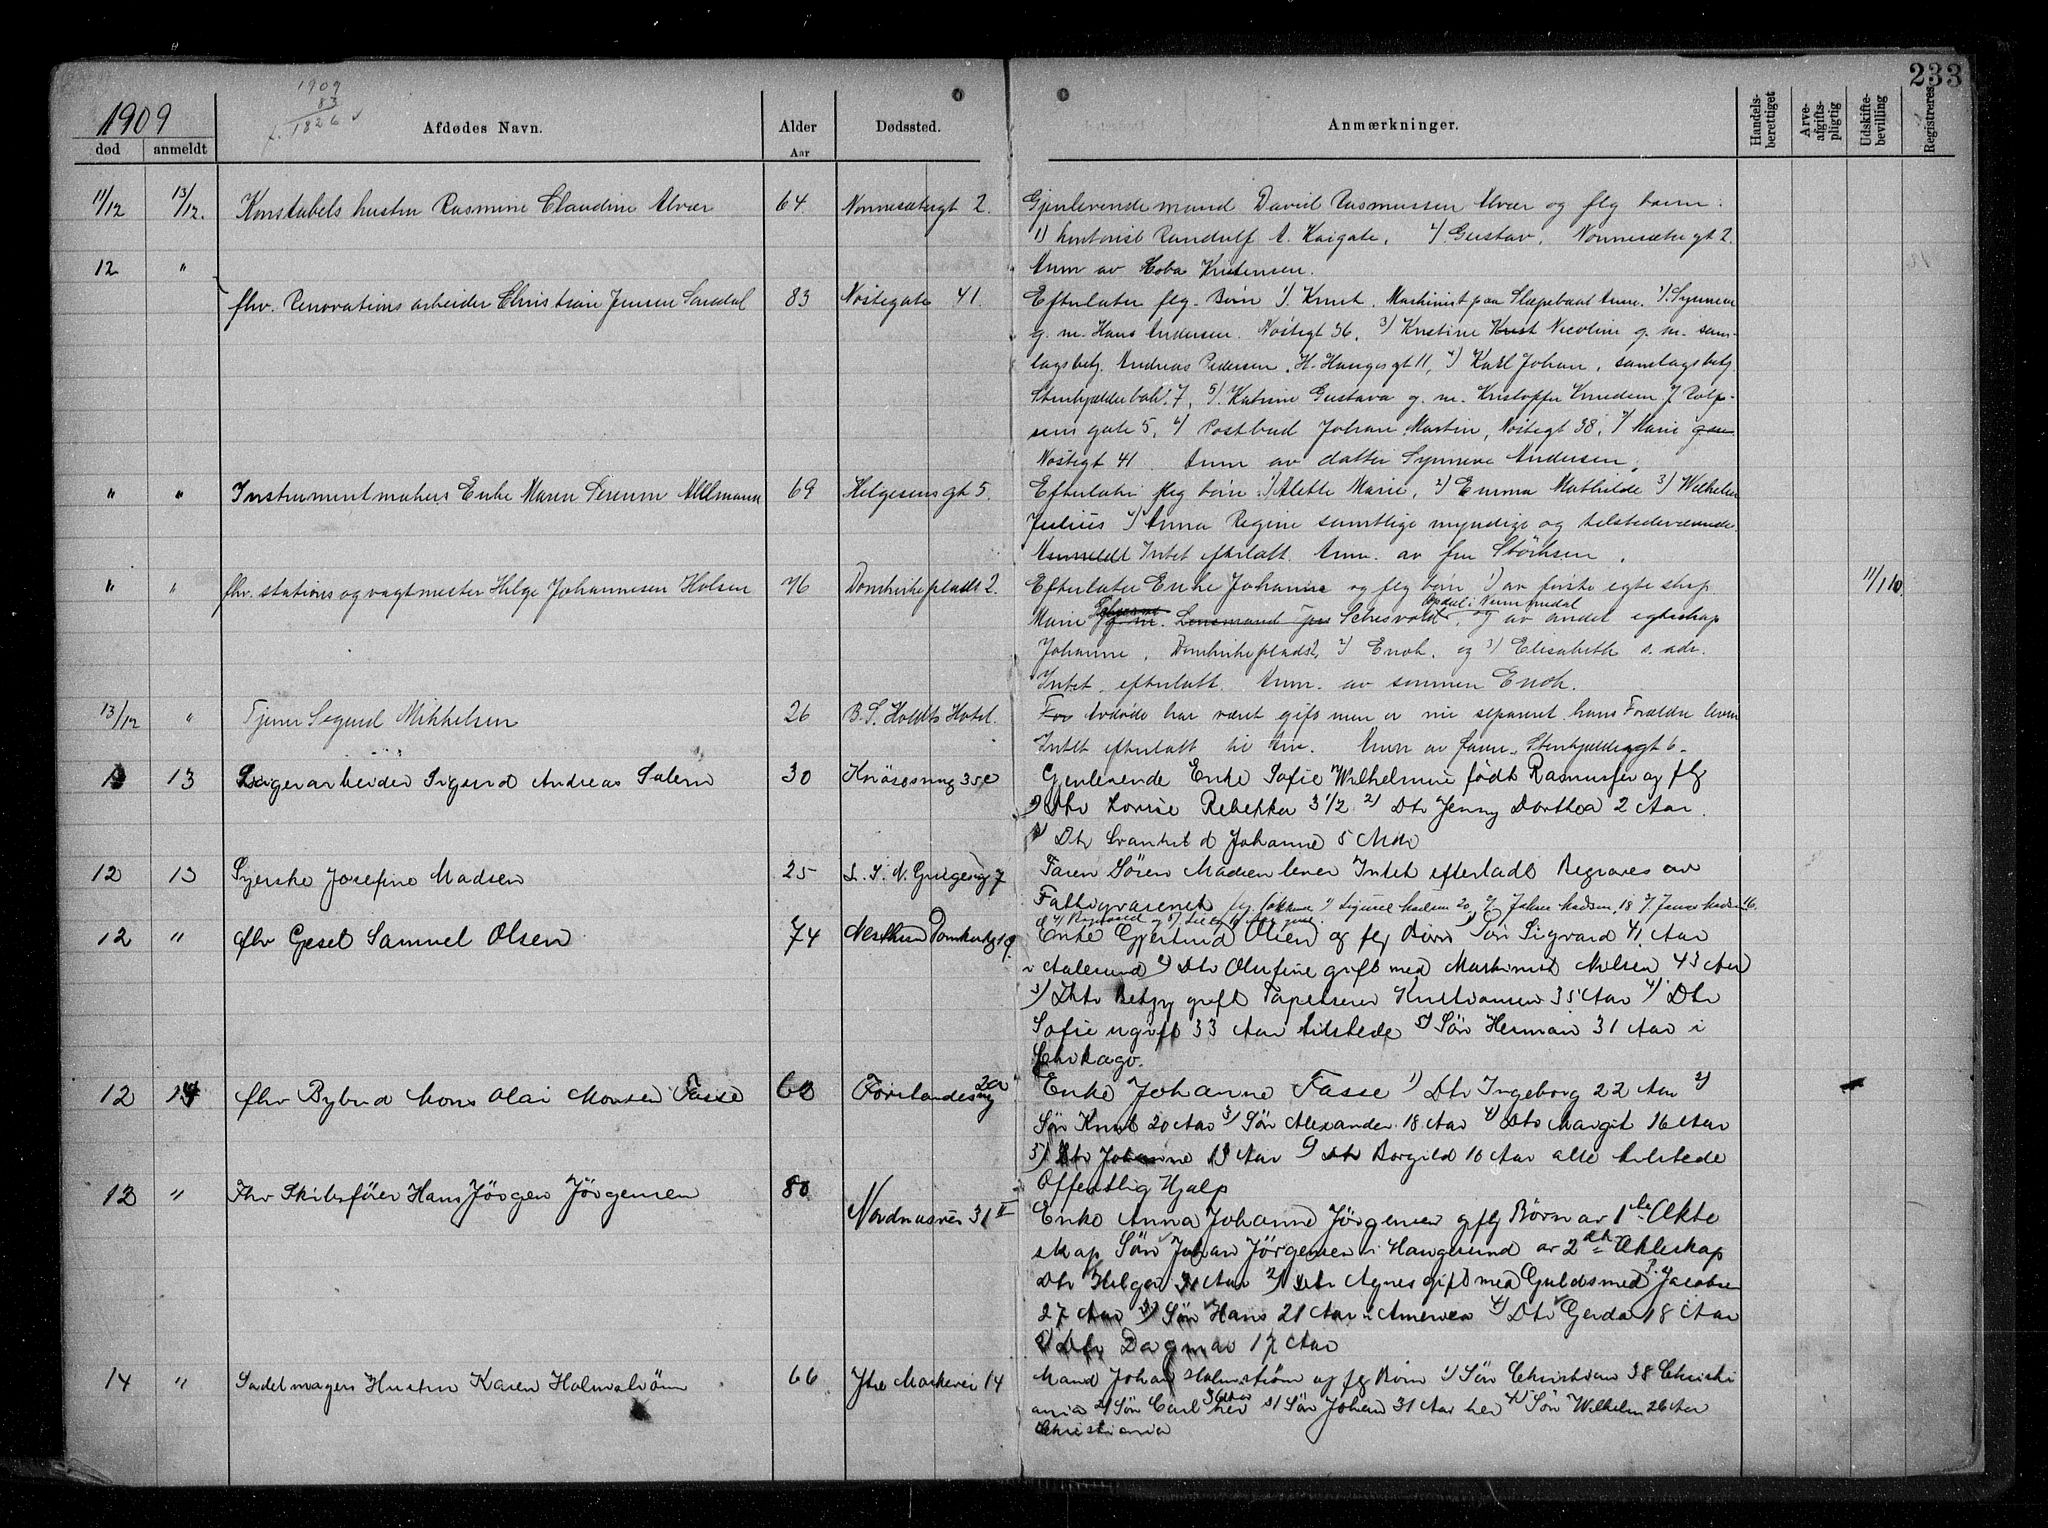 233
1909
83
f. 1826
1909
død
anmeldt
Afdødes Navn.
Alder
Aar
Dødssted.
Anmærkninger.
Handels-
berettiget
Arve-
afgifts-
pligtig
Udskifte-
bevilling
Registreres
11/12 13/12. Konstabels hustru Rasmine Claudine Alvær 64 Nonnesætergt 2. Gjenlevende mand David Rasmussen Alvær og flg barn:
1) kontorist Randulf A. Kaigate, 2) Gustav, Nonnesætergt 2.
12 " Anm av Kristensen.
fhv. Renovationsarbeider Christian Jensen Sandal 83 Nøstegate 41. Efterlater flg. Børn 1). Knut, Maskinist paa Slæpebaat Anna. 2). Synneva
g. m. Hans Andersen. Nøstegt 36, 3) Kristine Nicoline g. m. sam-
lagsbetj. Andreas Pedersen, H. Haugesgt 11, 4) Karl Johan, samlagsbetj.
Stenkjælderbak. 7, 5). Katrine Gustava g. m. Kristoffer Knudsen
gate 5, 6) Postbud Johan Martin, Nøstegt 38, 7) Marie
Nøstegt 41. Anm av datter Synneve Andersen.
" " Instrumentmakers Enke Maren Serene Ahlmann 69 Helgesens gt 5. Efterlater flg børn 1) Alette Marie, 2) Emma Mathilde 3) Wilhelm
Julius 4) Anna Regine samtlige myndige og tilstedeværende.
Anmeldt Intet efterlatt. Anm. av fru Störksen.
" " fhv. stations og vagtmester Helge Johannesen Holsen 76 Domkirkeplads 2. Efterlater Enke Johanne og flg børn 1) av første egteskap 11/1 10
Opdal i Nummedal
Marie g. m. Lensmand og av andet egteskap
Johanne, Domkirkeplads 2, 2) Enok. og 3) Elisabeth s. adr.
Intet efterlatt. Anm. av sønnen Enok.
13/12 " Tjener Sigurd Mikkelsen 26 B. S. Holdts Hotel. Avdøde har været gift men er nu separeret. hans Forældre lever
Intet efterlatt til Arv. Anm av faren, Stenkjeldergt 6.
13 13 Lagerarbeider Sigurd Andreas Salem 30 Knøsesmug 35 Gjenlevende Enke Sofie Wilhelmine født Rasmusen og flg
1) Dtr Lovise Rebekka 3 1/2 2) Dtr Jenny Dorthea 2 Aar.
3) Dtr Svanhild Johanne 5 Mdr
12 13 Syerske Josefine Madsen 25 Faren Søren Madsen lever Intet efterladt Begraves av
Fattigvæsenet
12 " fhv Gjesel Samuel Olsen 74 Enke Gjertrud Olsen og flg Børn 1) Søn Sigvard 41 Aar
i Aalesund 2) Dtr Olufine gift med Maskinist Nilsen 43 Aar
3) Dtr Betzy gift Tapetserer Kristiansen 35 Aar 4) Dtr
Sofie ugift 33 Aar tilstede 5) Søn Herman 31 Aar i
Chikago.
12 14 fhv Bybud Mons Olai Monsen Fasse 60 Forstandersmug 2a Enke Johanne Fasse 1) Dtr Ingeborg 22 Aar 2)
Søn Knut 20 Aar 3) Søn Alexander 18 Aar 4) Dtr Margit 16 Aar
5) Dtr Johanne 13 Aar 6) Dtr Borgild 10 Aar alle tilstede
Offentlig Hjælp
12 " Fhv Skibsfører Hans Jørgen Jörgensen 80 Nordnæsvei 31 II Enke Anna Johanne Jörgensen g flg Børn av 1ste Ækte
skap Søn Johan Jörgensen i Haugesund av 2det Ækteskap
Dtr Helga 31 Aar 2) Dtr Agnes gift med Guldsmed Jacobsen
27 Aar 3) Søn Hans 21 Aar i Amerika 4) Dtr Gerda 18 Aar
5) Dtr Dagmar 17 Aar
14 " Sadelmagers Hustru Karen Holmstrøm 66 Ytre Markevei 14 Mand Johan Holmstrøm og flg Børn 1) Søn Christian 38 Christi
ania 2) Søn Carl 36 Aar her 3) Søn Johan 31 Aar her 4) Søn Wilhelm 26 Aar
Christiania